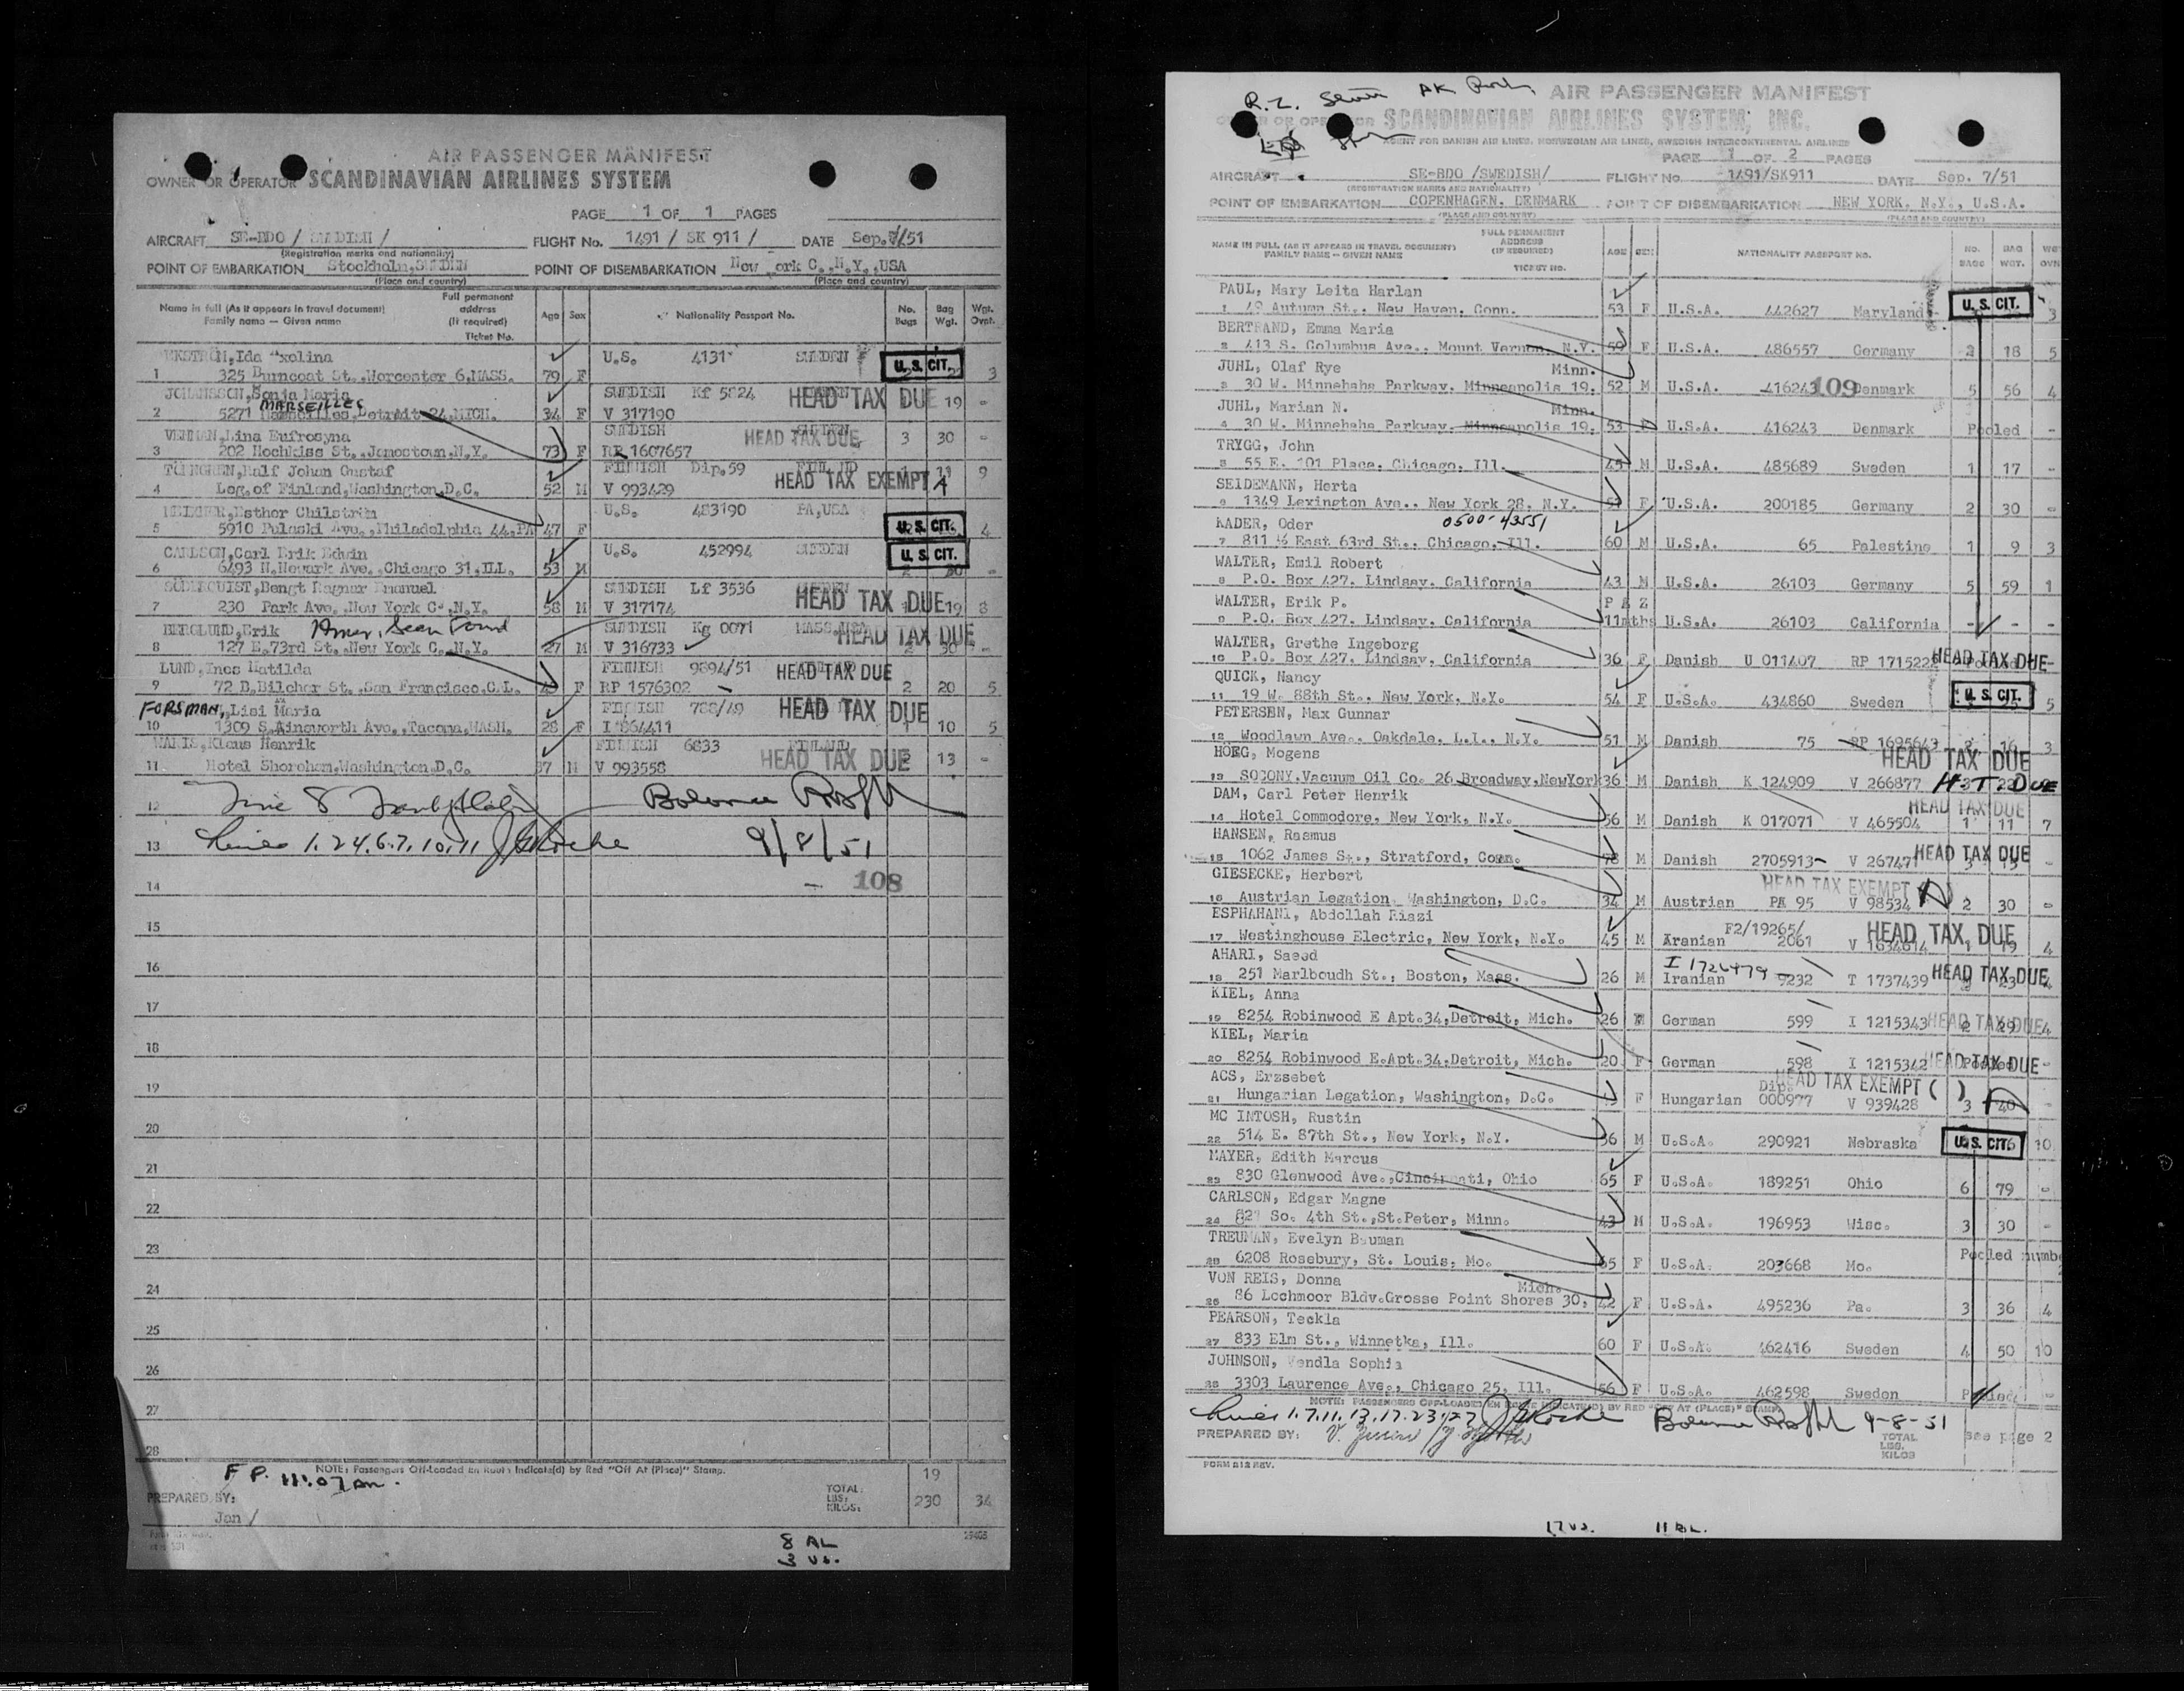 AIR PASSENGER MANIFEST
OWNER OR OPERATOR SCANDINAVIAN AIRLINES SYSTEM
PAGE 1 OF 1 PAGES
AIRCRAFT SE-BDO / SWEDISH / FLIGHT No. 1491 / SK 911 / DATE Sep. /51
(Registration marks and nationality)
POINT OF EMBARKATION Stockholm,SWEDEN POINT OF DISEMBARKATION New York C.,N.Y.,USA
(Place and country) (Place and country)
Name in full (As it appears in travel document) Family name — Given name Full permanent address (If required) Ticket No. Age Sex Nationality Passport No. No. Bags Bag Wgt. Wgt. Ovnt.
EKSTRÖM,Ida Axolina U.S. 4131 SWEDEN U.S. CIT.
1 325 Burncoat St.,Worcester 6,MASS. 79 F 3
JOHANSSON,Sonja Maria SWEDISH Kf 5824 HEAD TAX DUE 19 -
MARSEILLES
2 5271 Marseilles,Detroit 24,MICH. 34 F V 317190
VEHMAN,Lina Eufrosyna SWEDISH HEAD TAX DUE 3 30 -
3 202 Hochkiss St.,Jamestown,N.Y. 73 F RP 1607657
Ralf Johan Gustaf FINNISH Dip.59 FINLAND 9
4 Leg.of Finland,Washington,D.C. 52 M V 993429 HEAD TAX EXEMPT
Esthor Chilstrim U.S. 483190 PA,USA
5 5910 Pulaski Ave.,Philadelphia 44,PA 47 F U.S. CIT. 4
CARLSON,Carl Erik Edwin U.S. 452994 SWEDEN U.S. CIT.
6 6493 N.Nowark Ave.,Chicago 31,ILL. 53 M -
SÖDERQUIST,Bengt Ragnar Emanuel SWEDISH Lf 3536 HEAD TAX DUE
7 230 Park Ave.,New York C.,N.Y. 58 M V 317174 19 8
BERGLUND,Erik SWEDISH Kg 0071 MASS.USA HEAD TAX DUE
8 127 E.73rd St.,New York C.,N.Y. 27 M V 316733 -
LUND,Ines Matilda FINNISH 9894/51 HEAD TAX DUE
9 72 B.Bilcher St.,San Francisco,CAL. F RP 1576302 2 20 5
FORSMAN, Lisi Maria FINNISH 788/49 HEAD TAX DUE
10 1309 S.Ainsworth Ave.,Tacoma,WASH. 28 F I 864411 1 10 5
Klaus Henrik FINNISH 6833 FINLAND HEAD TAX DUE
11 Hotel Shoreham,Washington,D.C. 37 M V 993558 13 -
12
13 Lines 1.2.4.6.7.10.11 9/8/51
14 108
15
16
17
18
19
20
21
22
23
24
25
26
27
28
NOTE: Passengers Off-Loaded En Route Indicate(d) by Red "Off At (Place)" Stamp.
F P. 11:07 AM.
PREPARED BY: Jan / TOTAL: LBS: KILOS: 19 230 34
8 AL
3 US.
AIR PASSENGER MANIFEST
OWNER OR OPERATOR SCANDINAVIAN AIRLINES SYSTEM, INC.
AGENT FOR DANISH AIR LINES, NORWEGIAN AIR LINES, SWEDISH INTERCONTINENTAL AIRLINES
PAGE 1 OF 2 PAGES
AIRCRAFT SE-BDO /SWEDISH/ FLIGHT No. 1491/SK911 DATE Sep. 7/51
(REGISTRATION MARKS AND NATIONALITY)
POINT OF EMBARKATION COPENHAGEN, DENMARK POINT OF DISEMBARKATION NEW YORK, N.Y., U.S.A.
(PLACE AND COUNTRY) (PLACE AND COUNTRY)
NAME IN FULL (AS IT APPEARS IN TRAVEL DOCUMENT) FAMILY NAME — GIVEN NAME FULL PERMANENT ADDRESS (IF REQUIRED) TICKET NO. AGE SEX NATIONALITY PASSPORT NO. NO. BAGS BAG WGT. WGT OVN
PAUL, Mary Leita Harlan
1 49 Autumn St., New Haven, Conn. 53 F U.S.A. 442627 Maryland U.S. CIT. 3
BERTRAND, Emma Maria
2 413 S. Columbus Ave., Mount Vernon, N.Y. 59 F U.S.A. 486557 Germany 2 18 5
JUHL, Olaf Rye Minn.
3 30 W. Minnehaha Parkway, Minneapolis 19, 52 M U.S.A. 416243 109 Denmark 5 56 4
JUHL, Marian N. Minn.
4 30 W. Minnehaha Parkway, Minneapolis 19, 53 F U.S.A. 416243 Denmark Pooled -
TRYGG, John
5 55 E. 101 Place, Chicago, Ill. 45 M U.S.A. 485689 Sweden 1 17 -
SEIDEMANN, Herta
6 1349 Lexington Ave., New York 28, N.Y. 51 F U.S.A. 200185 Germany 2 30 -
KADER, Oder 0500-43551
7 811 ½ East 63rd St., Chicago, Ill. 60 M U.S.A. 65 Palestine 1 9 3
WALTER, Emil Robert
8 P.O. Box 427, Lindsay, California 43 M U.S.A. 26103 Germany 5 59 1
WALTER, Erik P.
9 P.O. Box 427, Lindsay, California 11mths U.S.A. 26103 California - - -
WALTER, Grethe Ingeborg
10 P.O. Box 427, Lindsay, California 36 F Danish U 011407 RP 1715228 HEAD TAX DUE
QUICK, Nancy
11 19 W. 88th St., New York, N.Y. 54 F U.S.A. 434860 Sweden U.S. CIT. 5
PETERSEN, Max Gunnar
12 Woodlawn Ave., Oakdale, L.I., N.Y. 51 M Danish 75 RP 1695643 HEAD TAX DUE 3
HÖEG, Mogens
13 SOCONY.Vacuum Oil Co. 26 Broadway,NewYork 36 M Danish K 124909 V 266877 H.T DUE
DAM, Carl Peter Henrik
14 Hotel Commodore, New York, N.Y. 56 M Danish K 017071 V 465504 HEAD TAX DUE 1 11 7
HANSEN, Rasmus
15 1062 James St., Stratford, Conn. 78 M Danish 2705913 V 267471 HEAD TAX DUE -
GIESECKE, Herbert
16 Austrian Legation, Washington, D.C. 34 M Austrian PA 95 V 98534 HEAD TAX EXEMPT 2 30 -
ESPHAHANI, Abdollah Riazi
17 Westinghouse Electric, New York, N.Y. 45 M Aranian F2/19265/ 2061 V 1634614 HEAD TAX DUE 4
AHARI, Saeed
18 251 Marlboudh St., Boston, Mass. 26 M Iranian I 1726479 9232 T 1737439 HEAD TAX DUE
KIEL, Anna
19 8254 Robinwood E Apt.34,Detroit, Mich. 26 F German 599 I 1215343 HEAD TAX DUE 4
KIEL, Maria
20 8254 Robinwood E.Apt.34,Detroit, Mich. 20 F German 598 I 1215342 HEAD TAX DUE -
ACS, Erzsebet
21 Hungarian Legation, Washington, D.C. F Hungarian Dip. 000977 V 939428 HEAD TAX EXEMPT ( ) 3 40 -
MC INTOSH, Rustin
22 514 E. 87th St., New York, N.Y. 56 M U.S.A. 290921 Nebraska U.S. CIT. 10
MAYER, Edith Marcus
23 830 Glenwood Ave.,Cincinnati, Ohio 65 F U.S.A. 189251 Ohio 6 79 -
CARLSON, Edgar Magne
24 827 So. 4th St.,St.Peter, Minn. 43 M U.S.A. 196953 Wisc. 3 30 -
TREUMAN, Evelyn Bauman
25 6208 Rosebury, St. Louis, Mo. 65 F U.S.A. 203668 Mo. Pooled numbe
VON REIS, Donna Mich.
26 86 Lochmoor Bldv.Grosse Point Shores 30, 42 F U.S.A. 495236 Pa. 3 36 4
PEARSON, Teckla
27 833 Elm St., Winnetka, Ill. 60 F U.S.A. 462416 Sweden 4 50 10
JOHNSON, Wendla Sophia
28 3303 Laurence Ave., Chicago 25, Ill. 56 F U.S.A. 462598 Sweden Pooled -
NOTE: PASSENGERS OFF-LOADED EN ROUTE INDICATE(D) BY RED "OFF AT (PLACE)" STAMP
Lines 1.7.11.13.17.23.27 9-8-51
PREPARED BY: TOTAL LBS. KILOS see page 2
FORM 212 REV.
17 US. 11 AL.